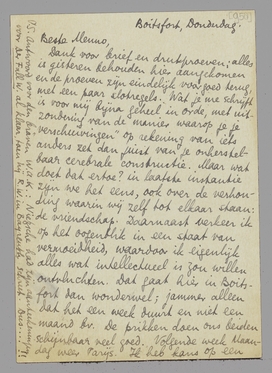 Boitsfort, Donderdag.
Beste Menno,
Dank voor brief en drukproeven; alles
is gisteren behouden hier aangekomen
en de proeven zijn eindelijk voorgoed terug,
met een paar slotregels. Wat je me schrijft
is voor mij bijna geheel in orde, met uit-
zondering van de manier waarop je je
"verschuivingen" op rekening van iets
anders zet dan juist van je onherstel-
baar cerebrale constructie. Maar wat
doet dat ertoe? in laatste instantie
zijn we het eens, ook over de verhou-
ding waarin wij zelf tot elkaar staan:
de vriendschap. Daarnaast verkeer ik
op het oogenblik in een staat van
vermoeidheid, waardoor ik eigenlijk
alles wat intellectueel is zou willen
ontvluchten. Dat gaat hier in Boits-
fort dan wonderwel; jammer alleen
dat het een week duurt en niet een
maand bv. De prikken doen ons beiden
schijnbaar veel goed. Volgende week Maan-
dag weer Parijs. Ik heb kans op een
P.S. Antwoord voor den braven